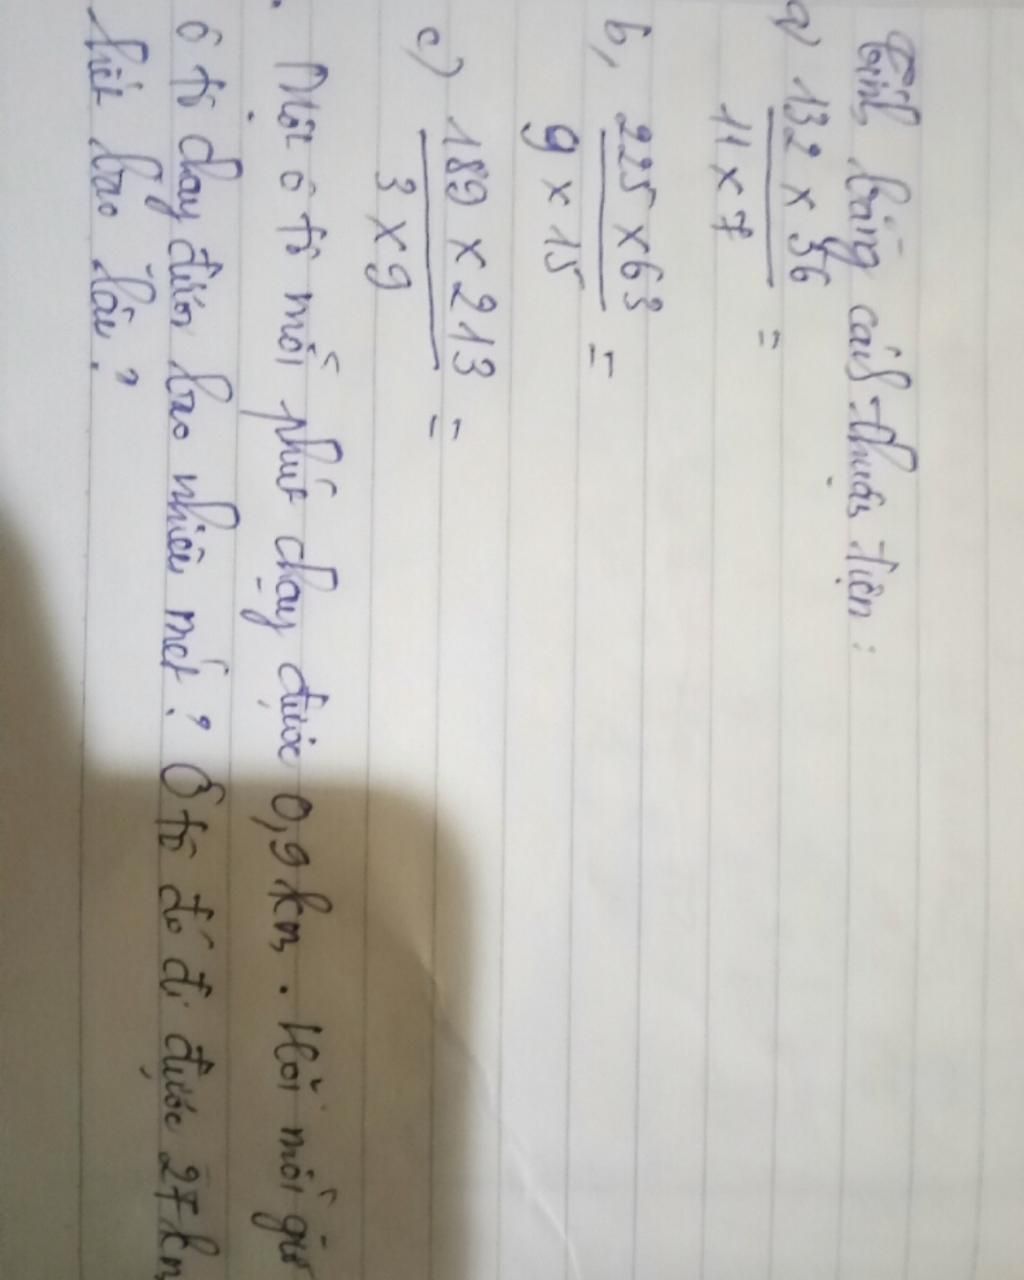 Tính bằng cách thuận tiện :
a) 132 x 36
11 x 7 =
b, 225 x 63
9 x 15 =
c) 189 x 213
3 x 9 =
. Một ô tô mỗi phút chạy được 0,9 km . Hỏi mỗi giờ
ô tô chạy được bao nhiêu mét ? Ô tô đó đi được 27 km
hết bao lâu ?